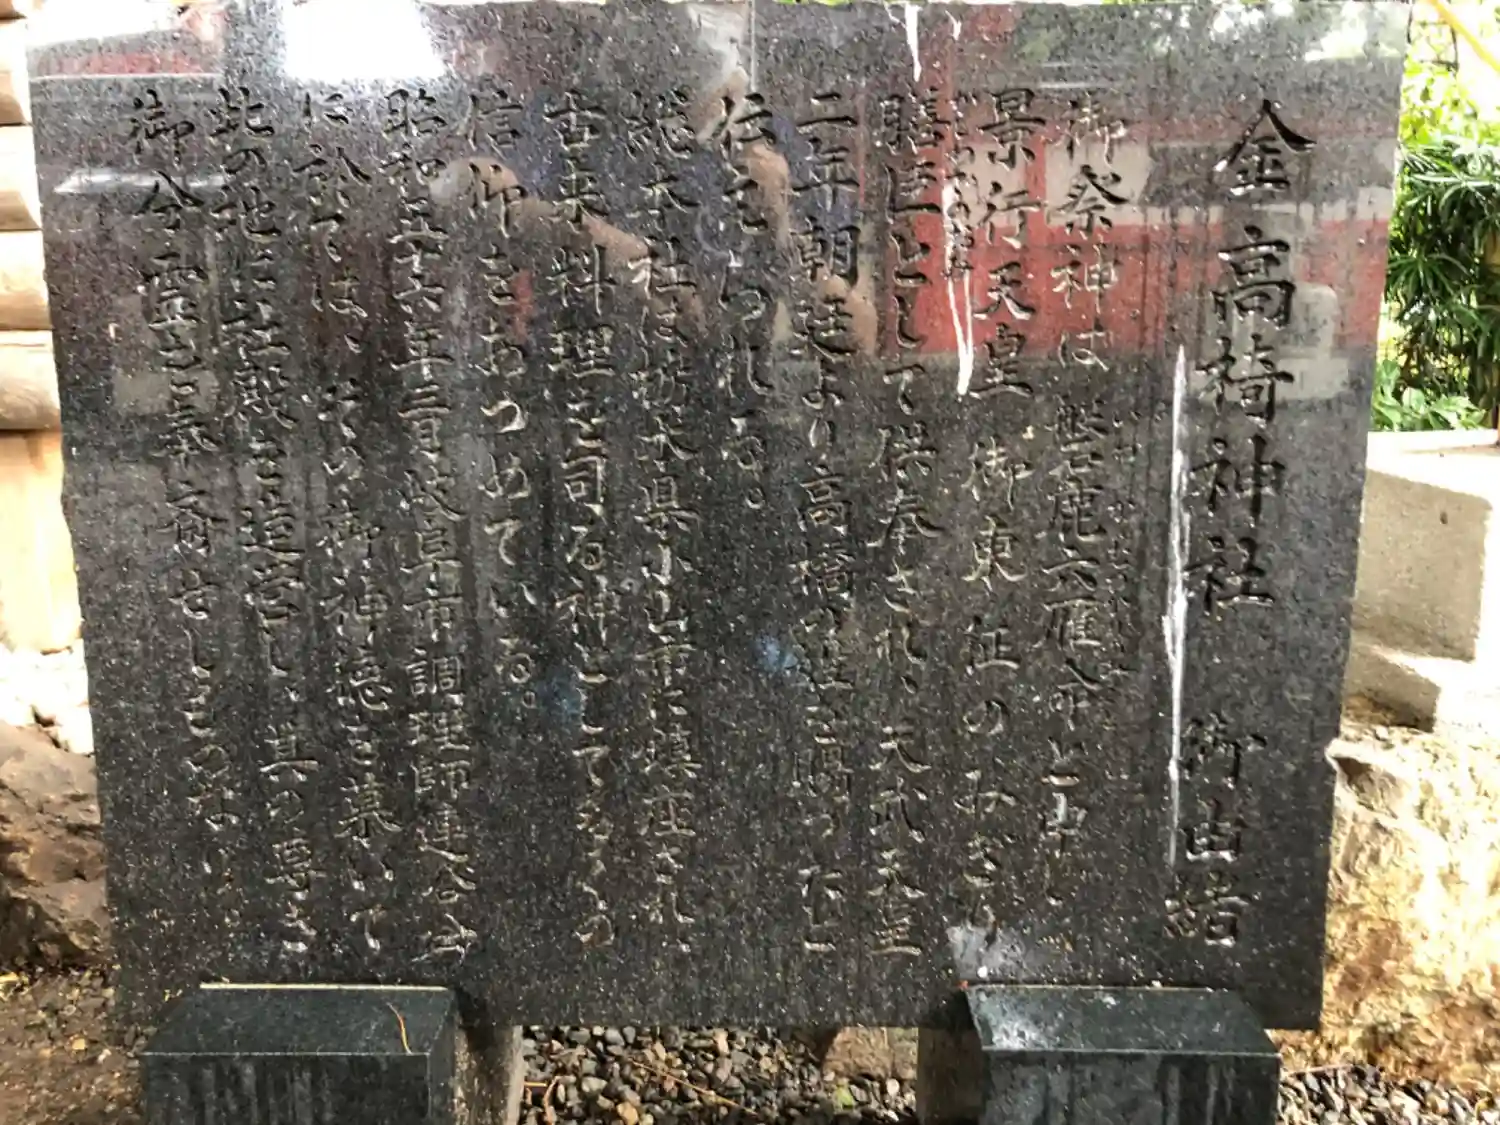 金高椅神社　御由緒
御祭神は磐鹿六雁命と申し
景行天皇　御東征のみぎり
膳臣として供奉され、天武天皇
二年朝廷より高橋の姓を賜ったと
伝えられる。
総本社は栃木県小山市に鎮座され、
古来料理を司る神としてあまねく
信仰をあつめている。
昭和五十六年三月岐阜市調理師連合会
に於ては、その御神徳を慕いて
此の地に社殿を造営し、其の尊き
御分霊を奉斎せしものなり。